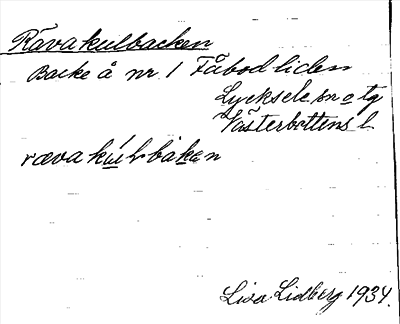 Rävakulbacken
Backe å nr 1 Fäbodliden
Lycksele sn o tg
Västerbottens l.
rævakúlbakɐn
Lisa Lidberg 1934.